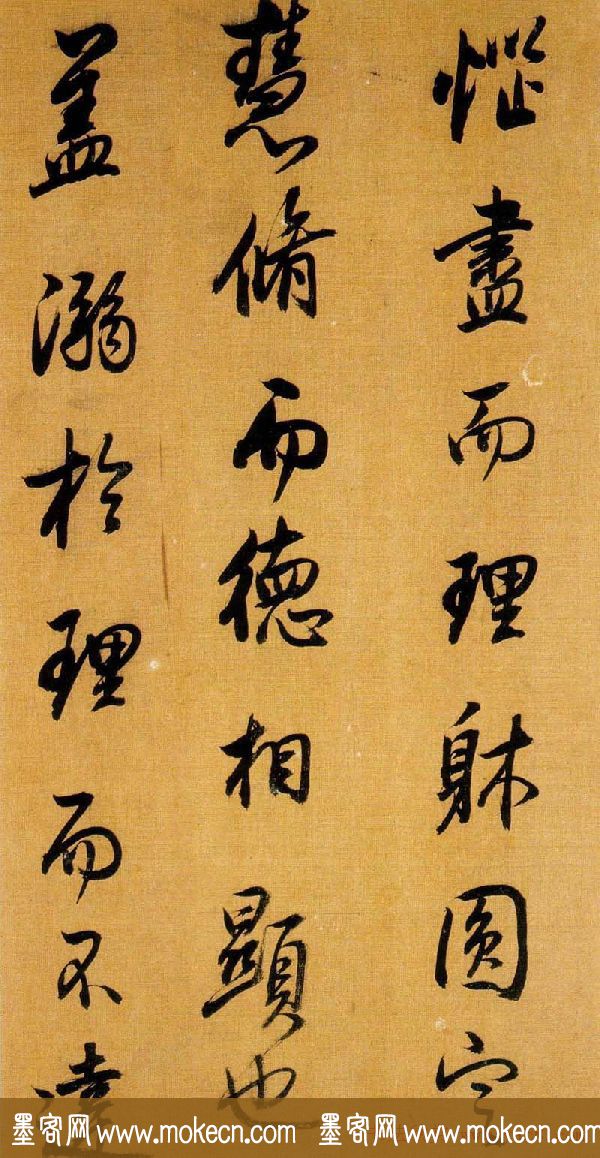 惱盡而理躰圓定
慧脩而德相顯也
蓋溺扵理而不達
墨客网 www.mokecn.com 墨客网 www.mokecn.com